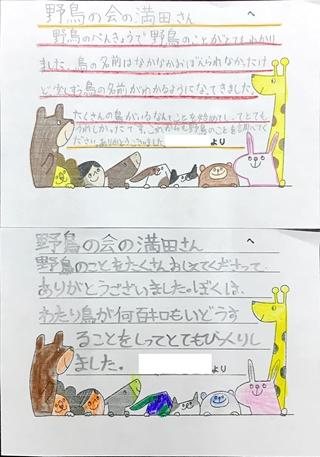 野鳥の会の満田さん へ
野鳥のべんきょうで野鳥のことがとてもわかり
ました。鳥の名前はなかなかおぼえられなかったけ
ど少しずつ鳥の名前がわかるようになってきました。
たくさんの鳥がいるなんてことを始めてしってとても
うれしかったです。これからも野鳥のことを調べてく
ださい。ありがとうございました。
より
野鳥の会の満田さん へ
野鳥のことをたくさんおしえてくださって、
ありがとうございました。ぼくは、
わたり鳥が何百キロもいどうす
ることをしってとてもびっくりし
ました。
より